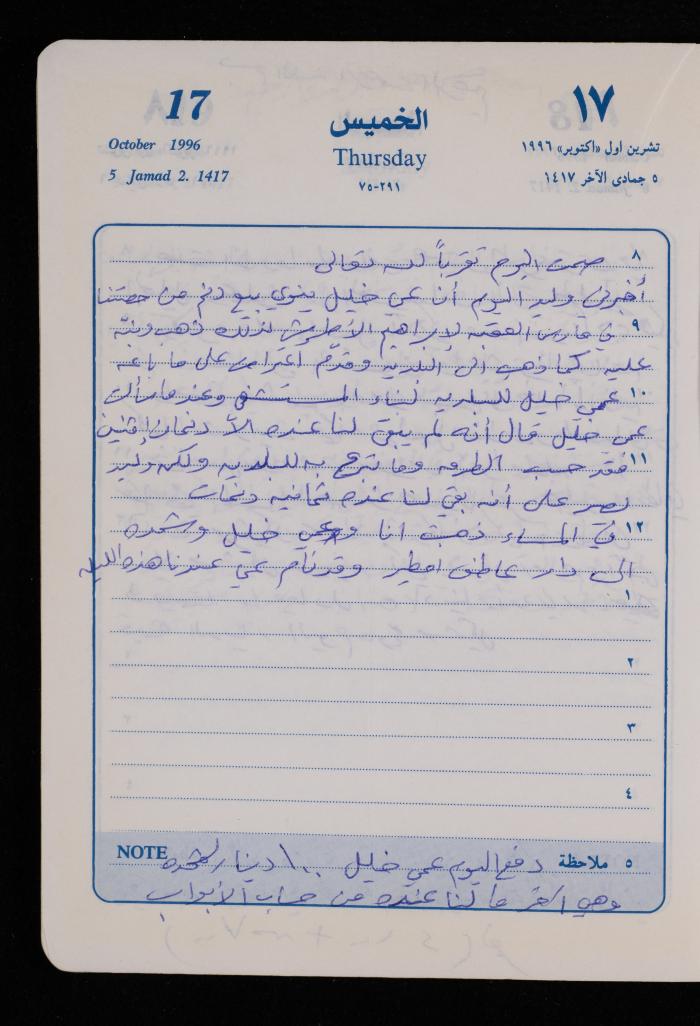 17
October 1996
5 Jamad 2. 1417
الخميس
Thursday
٧٥-٢٩١
١٧
تشرين اول «اكتوبر» ١٩٩٦
٥ جمادى الآخر ١٤١٧
٨ صمت اليوم تقرباً لله تعالى
أخبرني وليد اليوم أن عمي خليل ينوي بيع دنم من حصتنا
٩ في مارس العقبه لإبراهيم الأطرش لذلك ذهب ونبّه
عليه كما ذهب الى البلديه وقدّم اعتراض على ما باعه
١٠ عمي خليل للبلديه لبناء المستشفى وعندما سألت
عمي خليل قال أنه لم يبقى لنا عنده الاّ دنمان إثنين
١١ فقد حسب الطرقه وما تبرع به للبلديه ولكن وليد
يصر على أنه بقي لنا عنده ثمانيه دنمات
١٢ في المساء ذهبت انا وعمي خليل وشحده
الى دار عاطف امطير وقد نام عمي عندنا هذه الليله
١
٢
٣
٤
NOTE ملاحظة ٥ دفع اليوم عمي خليل ١٠٠ دينار لشحده
وهي آخر ما لنا عنده من حساب الأبواب